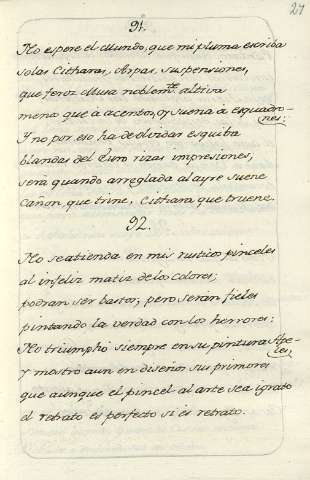 27
91.
No espere el Mundo, que mi pluma escriba
solas Citharas, Arpas, suspensiones,
que feroz Musa noblemte. altiva
menos que à acentos, oy suena à esquadro-
nes:
Y no por eso ha de olvidar esquiba
blandas del Euro rizas impresiones,
serà quando arreglada al ayre suene
Cañon, que trine, Cithara que truene.
92.
No se atienda en mis rusticos pinceles
al infeliz matiz de los colores;
podran ser bastos; pero seràn fieles
pintando la verdad con los herrores:
No triumphò siempre en su pintura Ape-
les,
y mostrò aun en diseños sus primores
que aunque el pincel al arte sea ignato
el retrato es perfecto si es retrato.